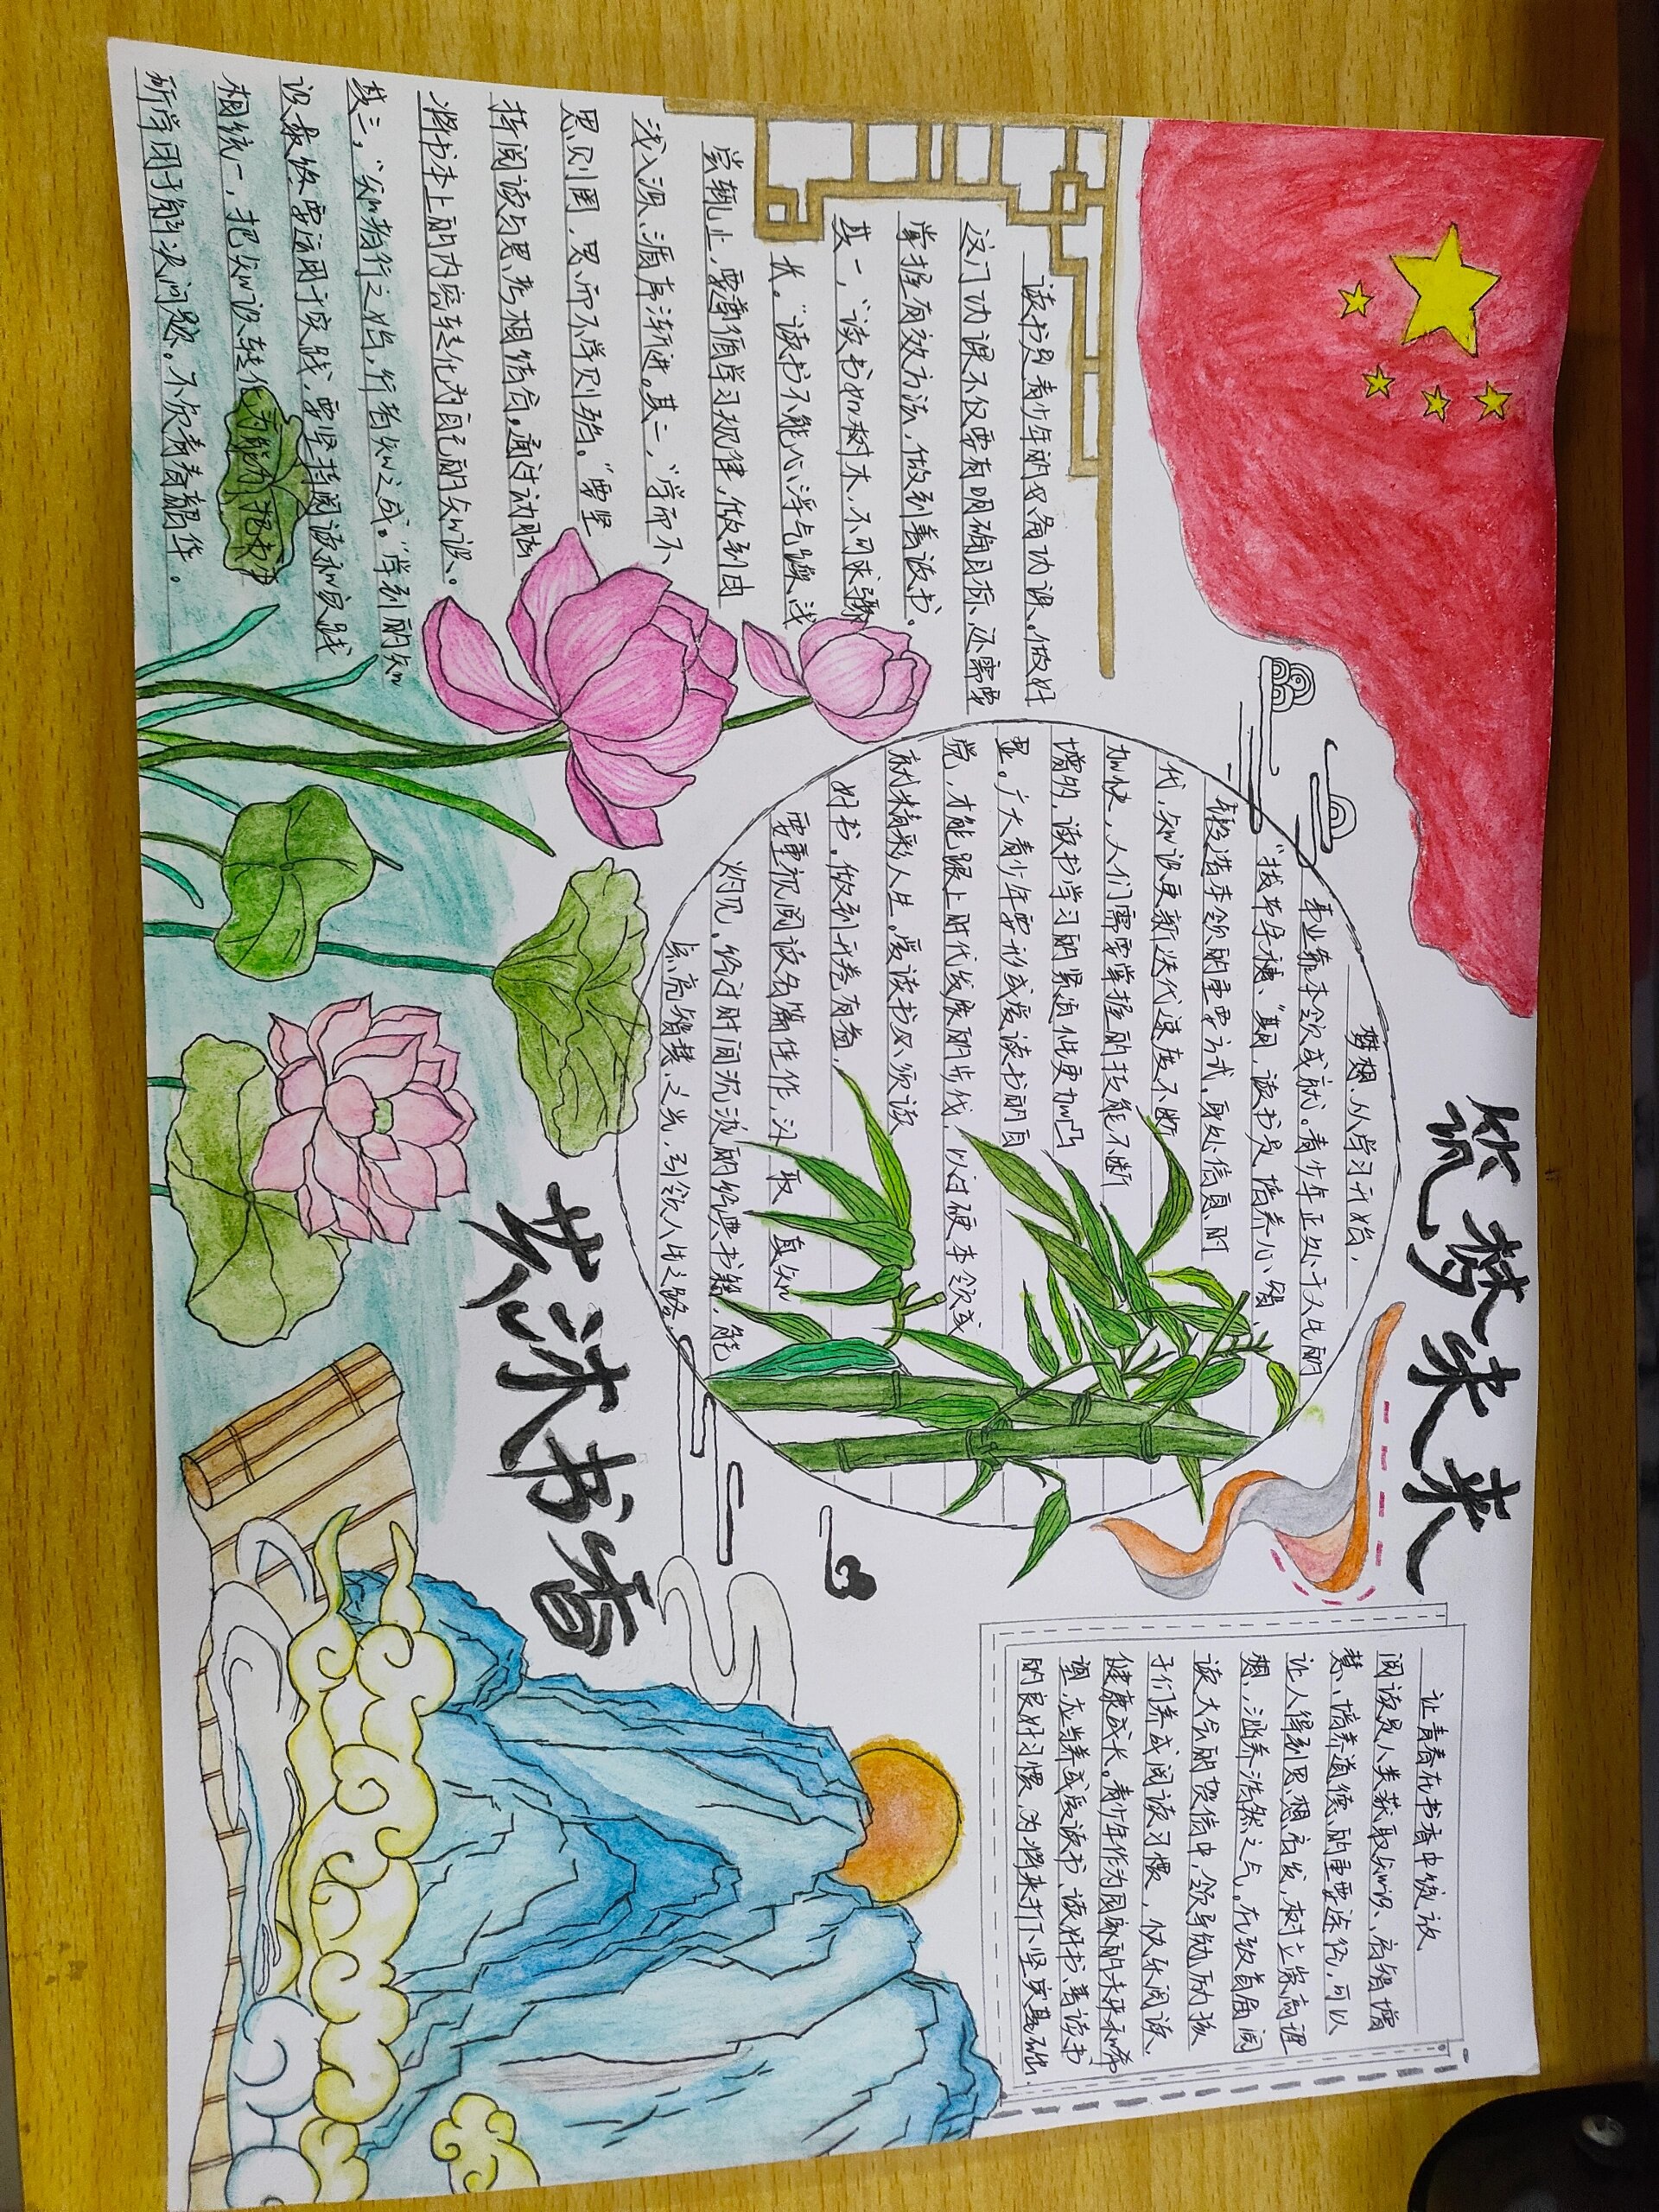 筑梦未来
共沐书香
读书是青少年的必备功课。做好
这门功课不仅需有明确目标、还需要
掌握有效方法，做到善读书。
其一，“读书如树木，不可求骤
长。”读书不能心浮气躁、浅
尝辄止，要遵循学习规律，做到由
浅入深、循序渐进。其二，“学而不
思则罔，思而不学则殆。”要坚
持阅读与思考相结合。通过动脑
将书本上的内容转化为自己的知识。
其三，“知者行之始，行者知之成。”学到的知
识最终要运用于实践，要坚持阅读和实践
相统一，把知识转化为能力，把书中
所学用于解决问题。不负青春韶华。
梦想，从学习开始，
事业靠本领成就。青少年正处于人生的
“拔节孕穗”期，读书是培养心智、
锻造本领的重要方式，身处信息时
代，知识更新迭代速度不断
加快，人们需要掌握的技能不断
增多，读书学习的累积性更加凸
显。广大青少年要形成爱读书的自
觉，才能跟上时代发展的步伐，以过硬本领成
就精彩人生。爱读书必须读
好书。做到开卷有益，
要重视阅读名篇佳作，汲取真知
灼见。经过时间沉淀的经典书籍，能
点亮智慧之光，引领人生之路。
让青春在书香中绽放
阅读是人类获取知识、启智增
慧、培养道德的重要途径，可以
让人得到思想启发，树立崇高理
想，涵养浩然之气。在致首届阅
读大会的贺信中，领导勉励孩
子们养成阅读习惯，快乐阅读，
健康成长。青少年作为国家的未来和希
望，应当养成爱读书、读好书、善读书
的良好习惯，为将来打下坚实基础。